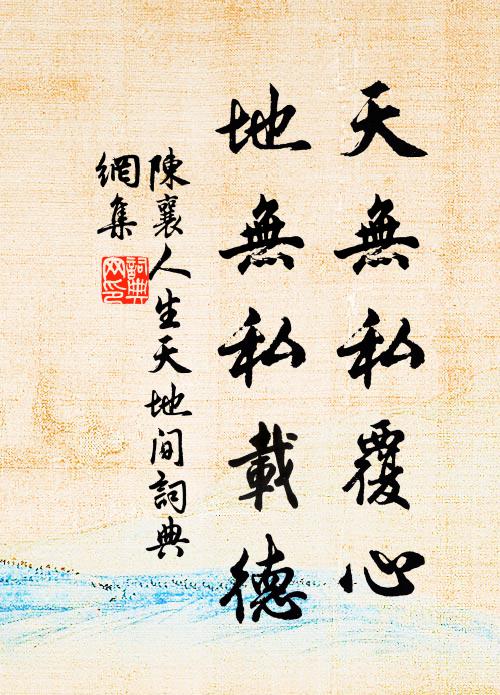 天無私覆心
地無私載德
陳襄人生天地間詞典
網集
詞典
网印